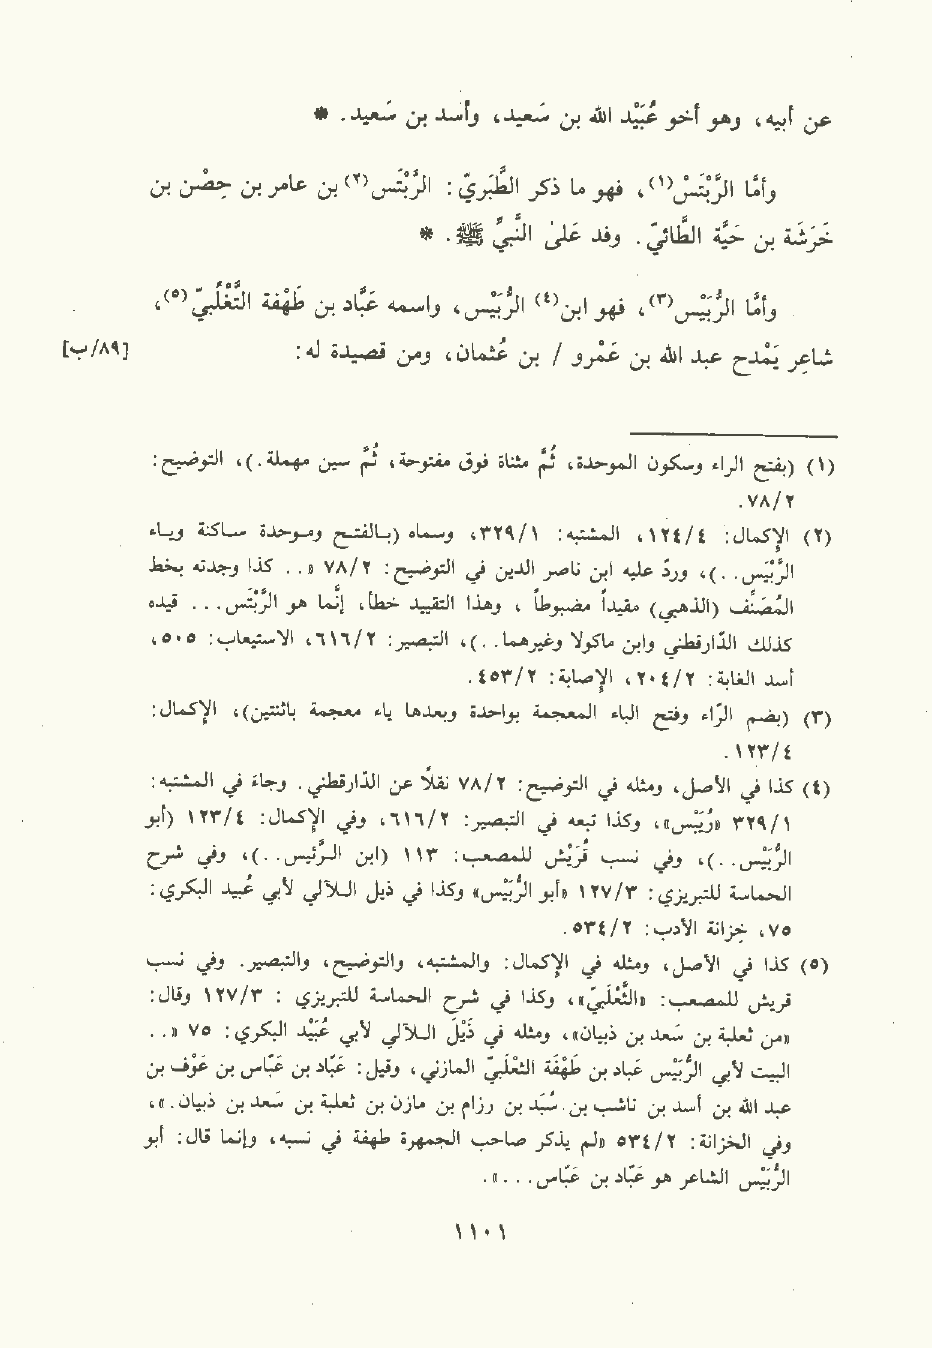 عن أبيه، وهو أخو عُبَيْد الله بن سَعيد، وأسد بن سَعيد. *
وأمّا الرَّبْتَسْ(١)، فهو ما ذكر الطَّبَريّ: الرَّبْتَس(٢) بن عامر بن حِصْن بن
خَرَشَة بن حَيَّة الطائيّ. وفد عَلىٰ النبيِّ ﷺ. *
وأمّا الرُّبَيْس(٣)، فهو ابن(٤) الرُّبَيْس، واسمه عَبَّاد بن طَهْفة الثَّعْلَبيّ(٥)،
شاعِر يَمْدح عبد الله بن عَمْرو / بن عُثمان، ومن قصيدة له:
[٨٩/ب]
(١) (بفتح الراء وسكون الموحدة، ثُمَّ مثناة فوق مفتوحة، ثُمَّ سين مهملة.)، التوضيح:
٧٨/٢.
(٢) الإكمال: ١٢٤/٤، المشتبه: ٣٢٩/١، وسماه (بالفتح وموحدة ساكنة وياء
الرَّبْيَس..)، وردّ عليه ابن ناصر الدين في التوضيح: ٧٨/٢ «.. كذا وجدته بخط
المُصَنِّف (الذهبي) مقيداً مضبوطاً، وهذا التقييد خطأ، إنما هو الرَّبْتَس... قيده
كذلك الدّارقطني وابن ماكولا وغيرهما..)، التبصير: ٦١٦/٢، الاستيعاب: ٥٠٥،
أسد الغابة: ٢٠٤/٢، الإصابة: ٤٥٣/٢.
(٣) (بضم الرّاء وفتح الباء المعجمة بواحدة وبعدها ياء معجمة باثنتين)، الإكمال:
١٢٣/٤.
(٤) كذا في الأصل، ومثله في التوضيح: ٧٨/٢ نقلاً عن الدّارقطني. وجاءَ في المشتبه:
٣٢٩/١ «رُبَيْس»، وكذا تبعه في التبصير: ٦١٦/٢، وفي الإكمال: ١٢٣/٤ (أبو
الرُّبَيْس..)، وفي نسب قُرَيْش للمصعب: ١١٣ (ابن الرَّئيس..)، وفي شرح
الحماسة للتبريزي: ١٢٧/٣ «أبو الرُّبَيْس» وكذا في ذيل اللآلي لأبي عُبيد البكري:
٧٥، خِزانة الأدب: ٥٣٤/٢.
(٥) كذا في الأصل، ومثله في الإكمال: والمشتبه، والتوضيح، والتبصير. وفي نسب
قريش للمصعب: «الثَّعْلَبيّ»، وكذا في شرح الحماسة للتبريزي: ١٢٧/٣ وقال:
«من ثعلبة بن سَعد بن ذبيان»، ومثله في ذَيْل اللآلي لأبي عُبَيْد البكري: ٧٥ «..
البيت لأبي الرُّبَيْس عَباد بن طَهْفَة الثعلبيّ المازني، وقيل: عَبّاد بن عَبّاس بن عَوْف بن
عبد الله بن أسد بن ناشب بن سُبَد بن رزام بن مازن بن ثعلبة بن سَعد بن ذبيان.»،
وفي الخزانة: ٥٣٤/٢ «لم يذكر صاحب الجمهرة طهفة في نسبه، وإنما قال: أبو
الرُّبَيْس الشاعر هو عَبّاد بن عَبّاس...».
١١٠١